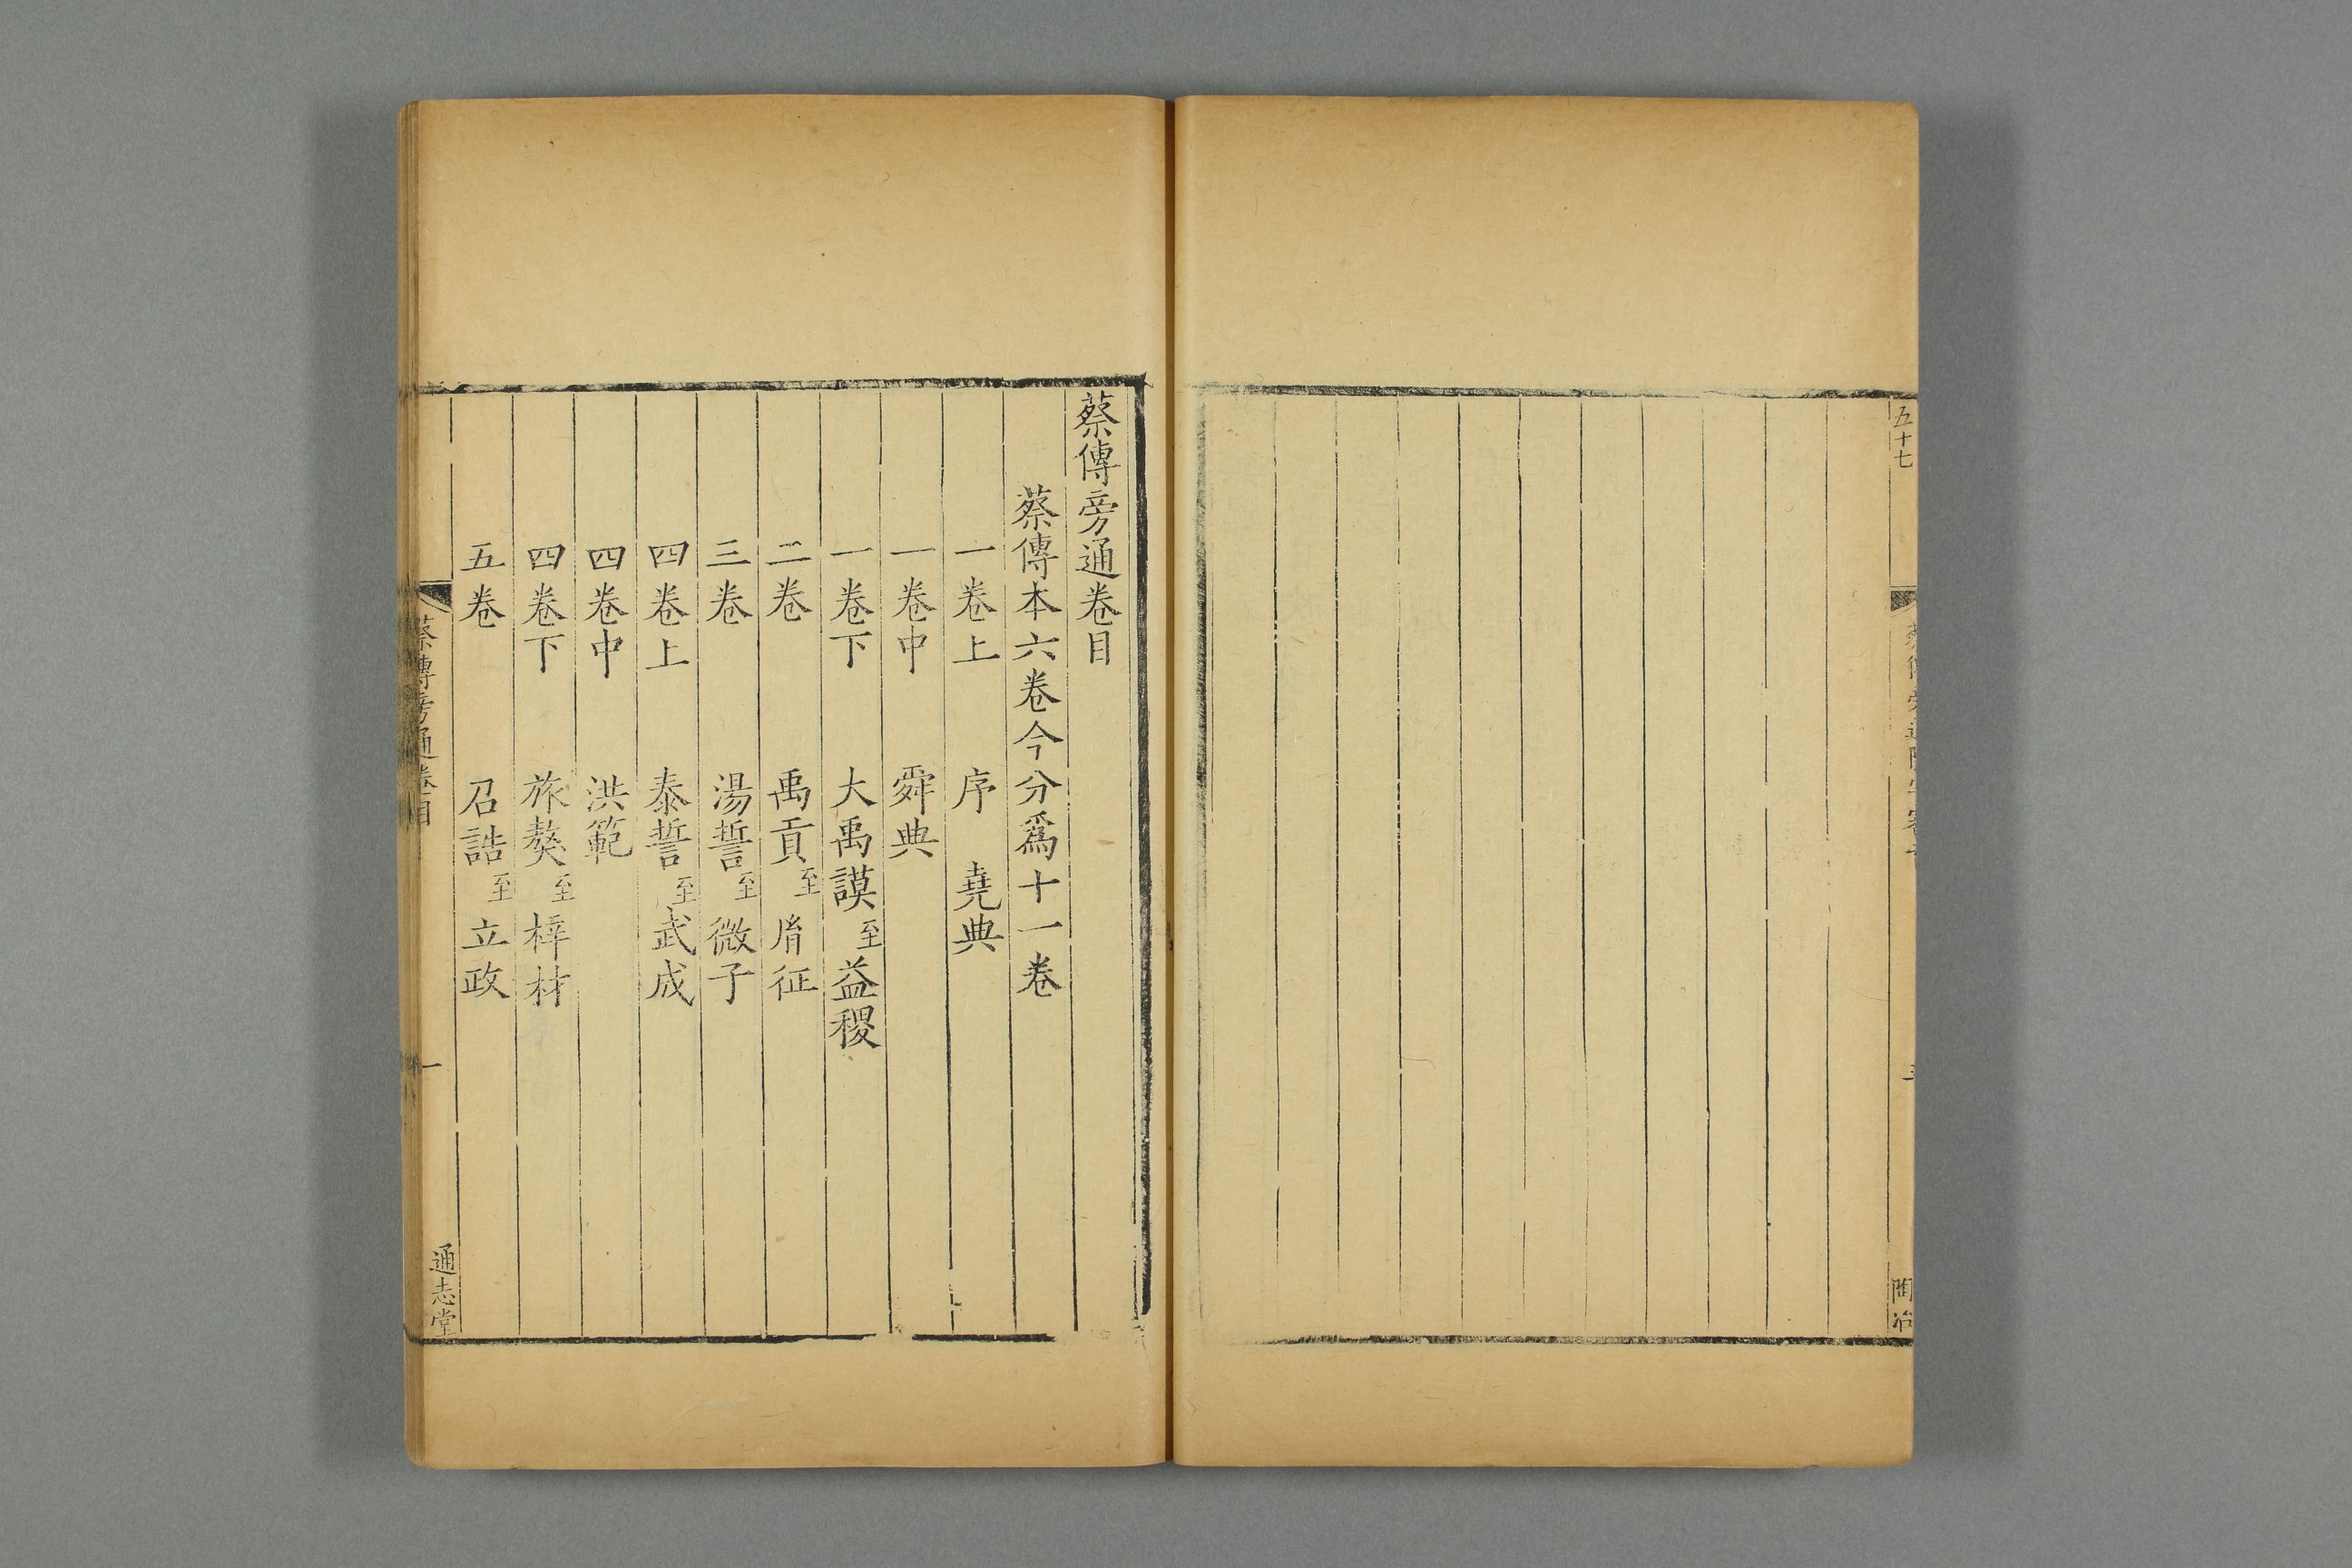 五十七
陶冶
蔡傳旁通卷目
蔡傳本六卷今分爲十一卷
一卷上　序　堯典
一卷中　舜典
一卷下　大禹謨至益稷
二卷　禹貢至胤征
三卷　湯誓至微子
四卷上　泰誓至武成
四卷中　洪範
四卷下　旅獒至梓材
五卷　召誥至立政
蔡傳旁通卷目
一
通志堂